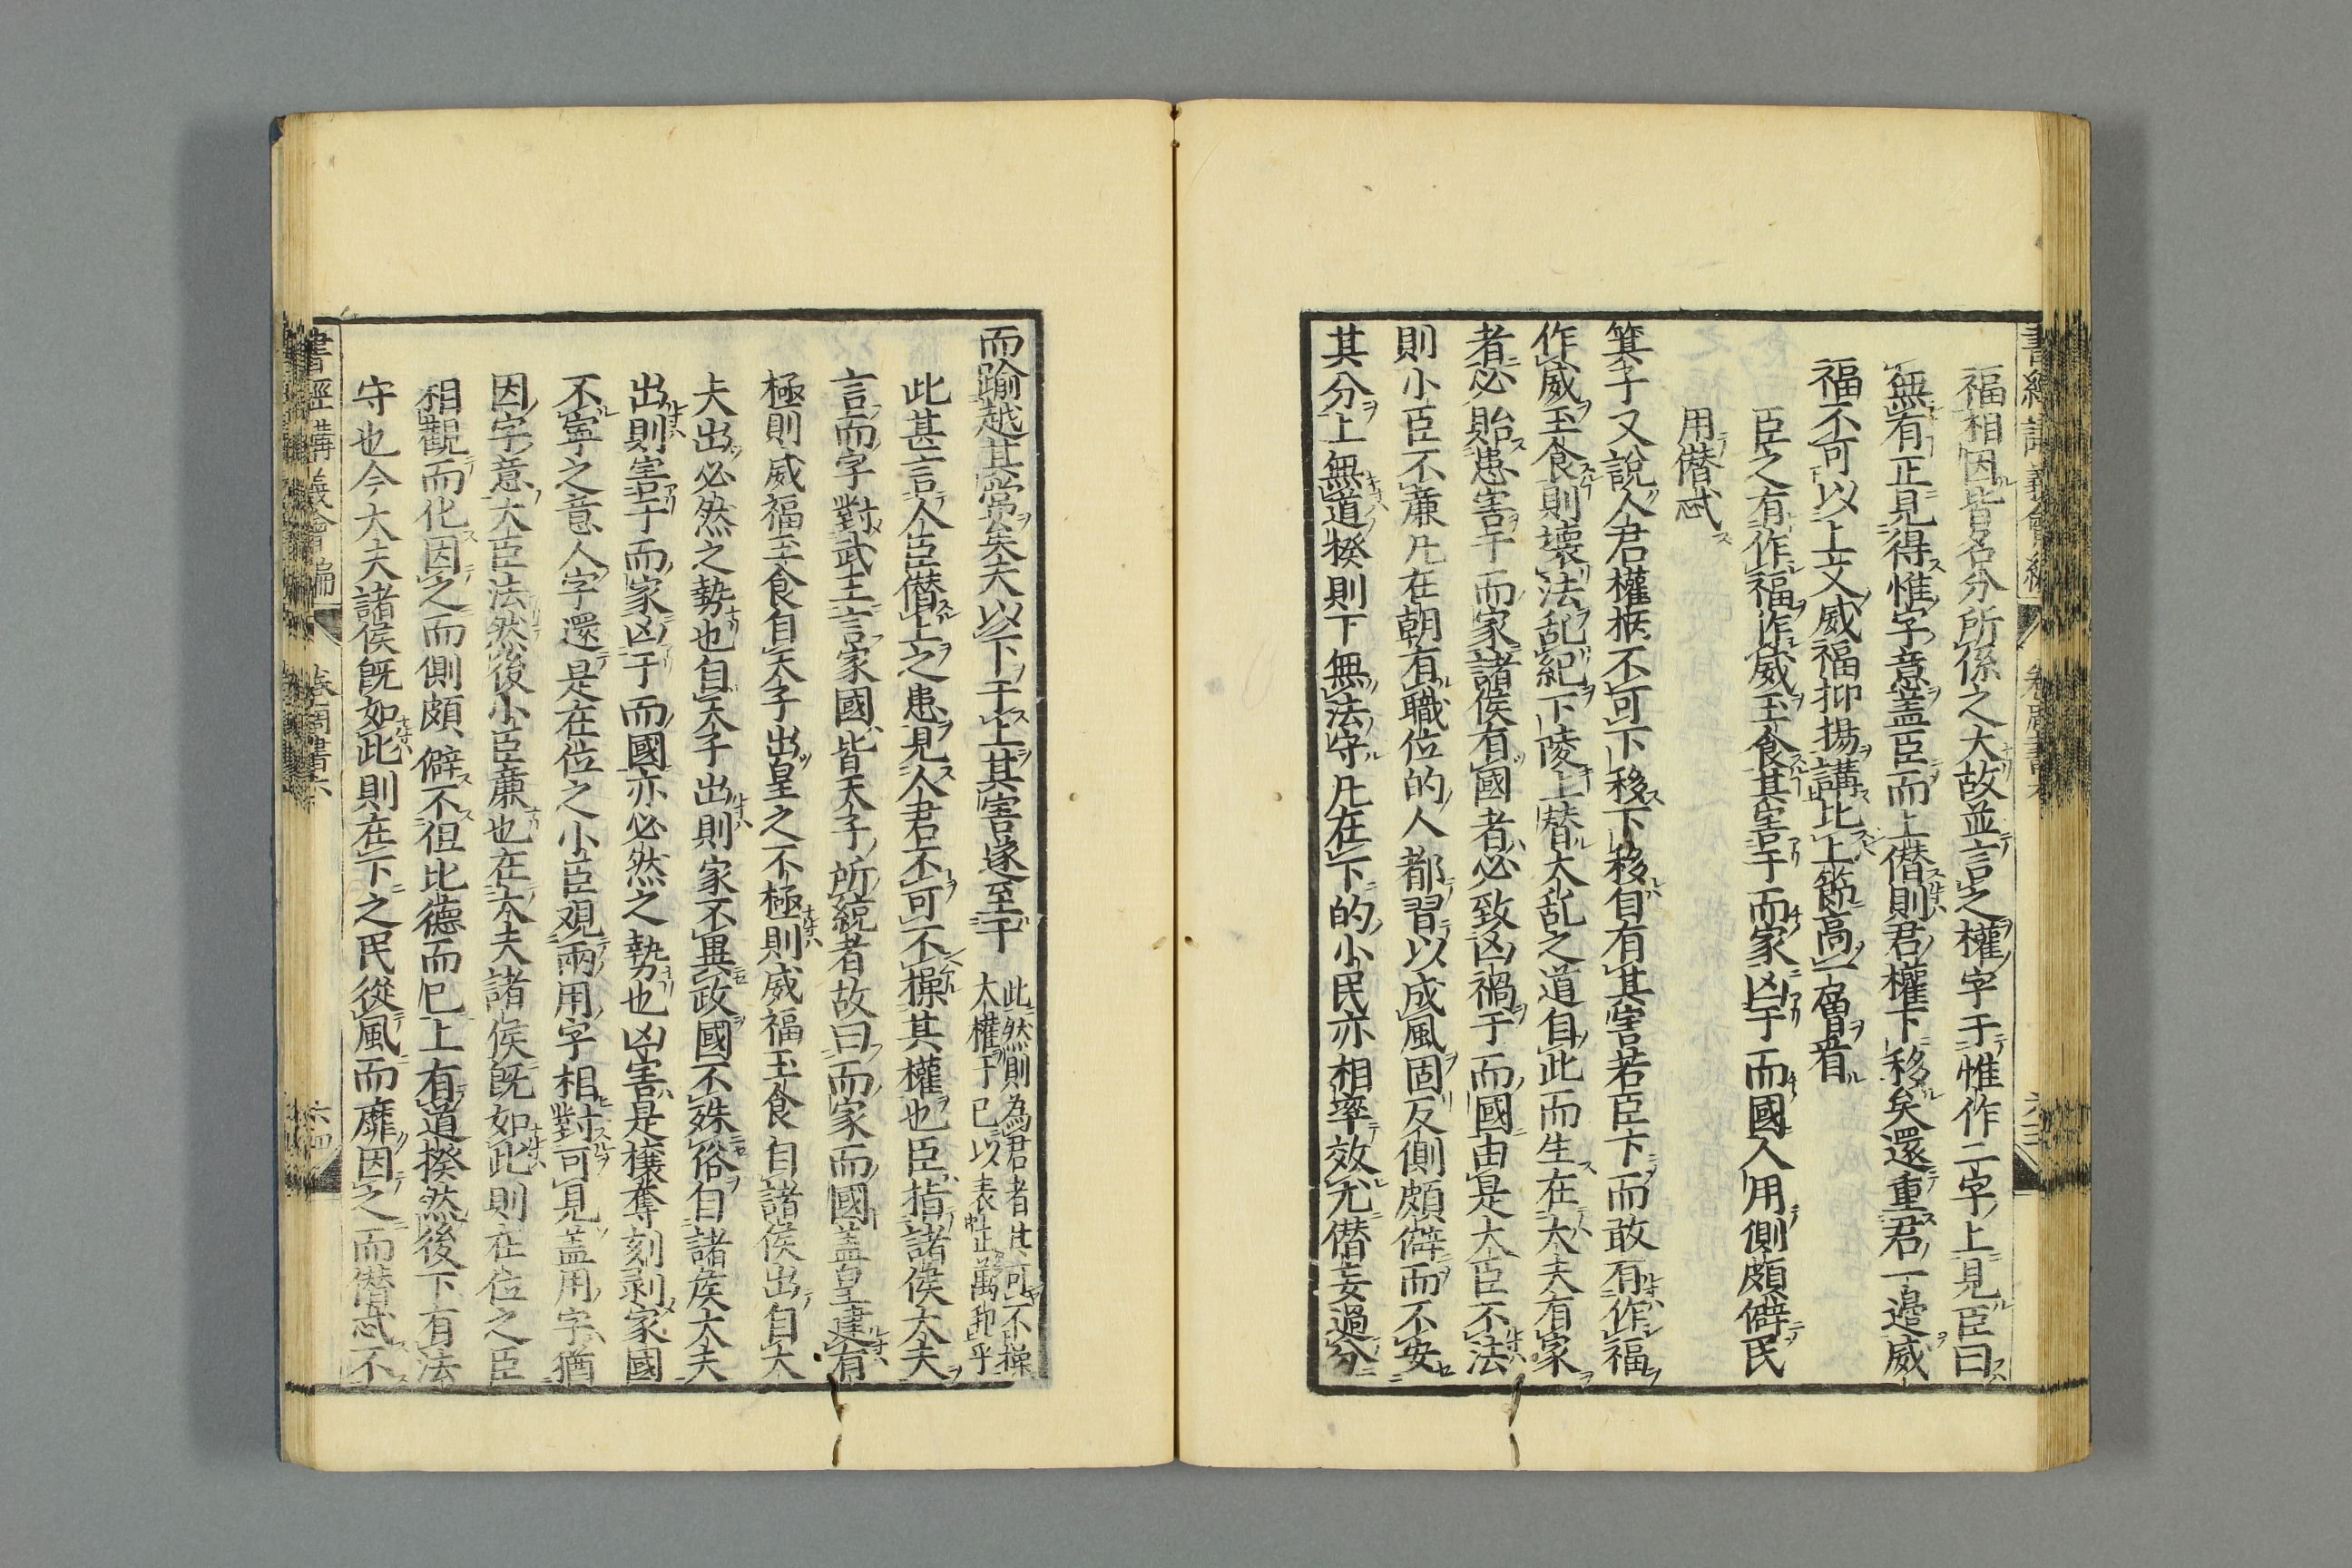 福相因皆名分所係之大故並言之權字于惟作二字上見臣曰
無有正見得惟字意蓋臣而上僣則君權下移矣還重君一邉威
福不可以上文威福抑揚講比上節高一層看
臣之有作福作威玉食其害于而家凶于而國人用側頗僻民
用僣忒
箕子又說人君權柄不可下移下移自有其害若臣下而敢有作福
作威玉食則壞法乱紀下陵上替大乱之道自此而生在大夫有家
者必貽患害于而家諸侯有國者必致凶禍于而國由是大臣不法
則小臣不亷凡在朝有職位的人都習以成風固反側頗僻而不安
其分上無道揆則下無法守凡在下的小民亦相率效尤僣妄過分
而踰越其常矣夫以下于上其害遂至于
此然則為君者其可不操
大權于已以表正萬邦乎
此甚言人臣僣上之患見人君不可不操其權也臣指諸侯大夫
言而字對武王言家國皆天子所統者故曰而家而國蓋皇建有
極則威福玉食自天子出皇之不極則威福玉食自諸侯出自大
夫出必然之勢也自天子出則家不異政國不殊俗自諸侯大夫
出則害于而家凶于而國亦必然之勢也凶害是攘奪刻剥家國
不寧之意人字還是在位之小臣观兩用字相對可見盖用字猶
因字意大臣法然後小臣亷也在大夫諸侯旣如此則在位之臣
相觀而化因之而側頗僻不但比德而已上有道揆然後下有法
守也今大夫諸侯旣如此則在下之民從風而靡因之而僣忒不
書經講義會編
周書六
六四